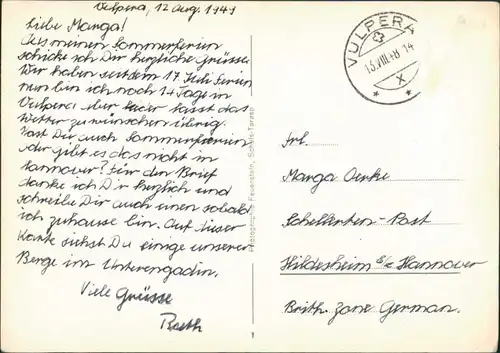 Vulpera, 12 Aug. 1949
Liebe Manga!
Aus meinen Sommerferien
schicke ich Dir herzliche Grüsse.
Wir haben seit dem 17 Juli Ferien
nun bin ich noch 14 Tage in
Vulpera. Aber leider lässt das
Wetter zu wünschen übrig.
Hast Du auch Sommerferien
oder gibt es das nicht in
Hannover? Für den Brief
danke ich Dir herzlich und
schreibe Dir auch einen sobald
ich zuhause bin. Auf dieser
Karte siehst Du einige unserer
Berge im Unterengadin.
Viele Grüsse
Ruth
Photographie Feuerstein, Schuls-Tarasp
VULPERA
13.VIII.48 14
X
Frl.
Manga Oerke
Schellerten-Post
Hildesheim b/e Hannover
Brith. Zone German.